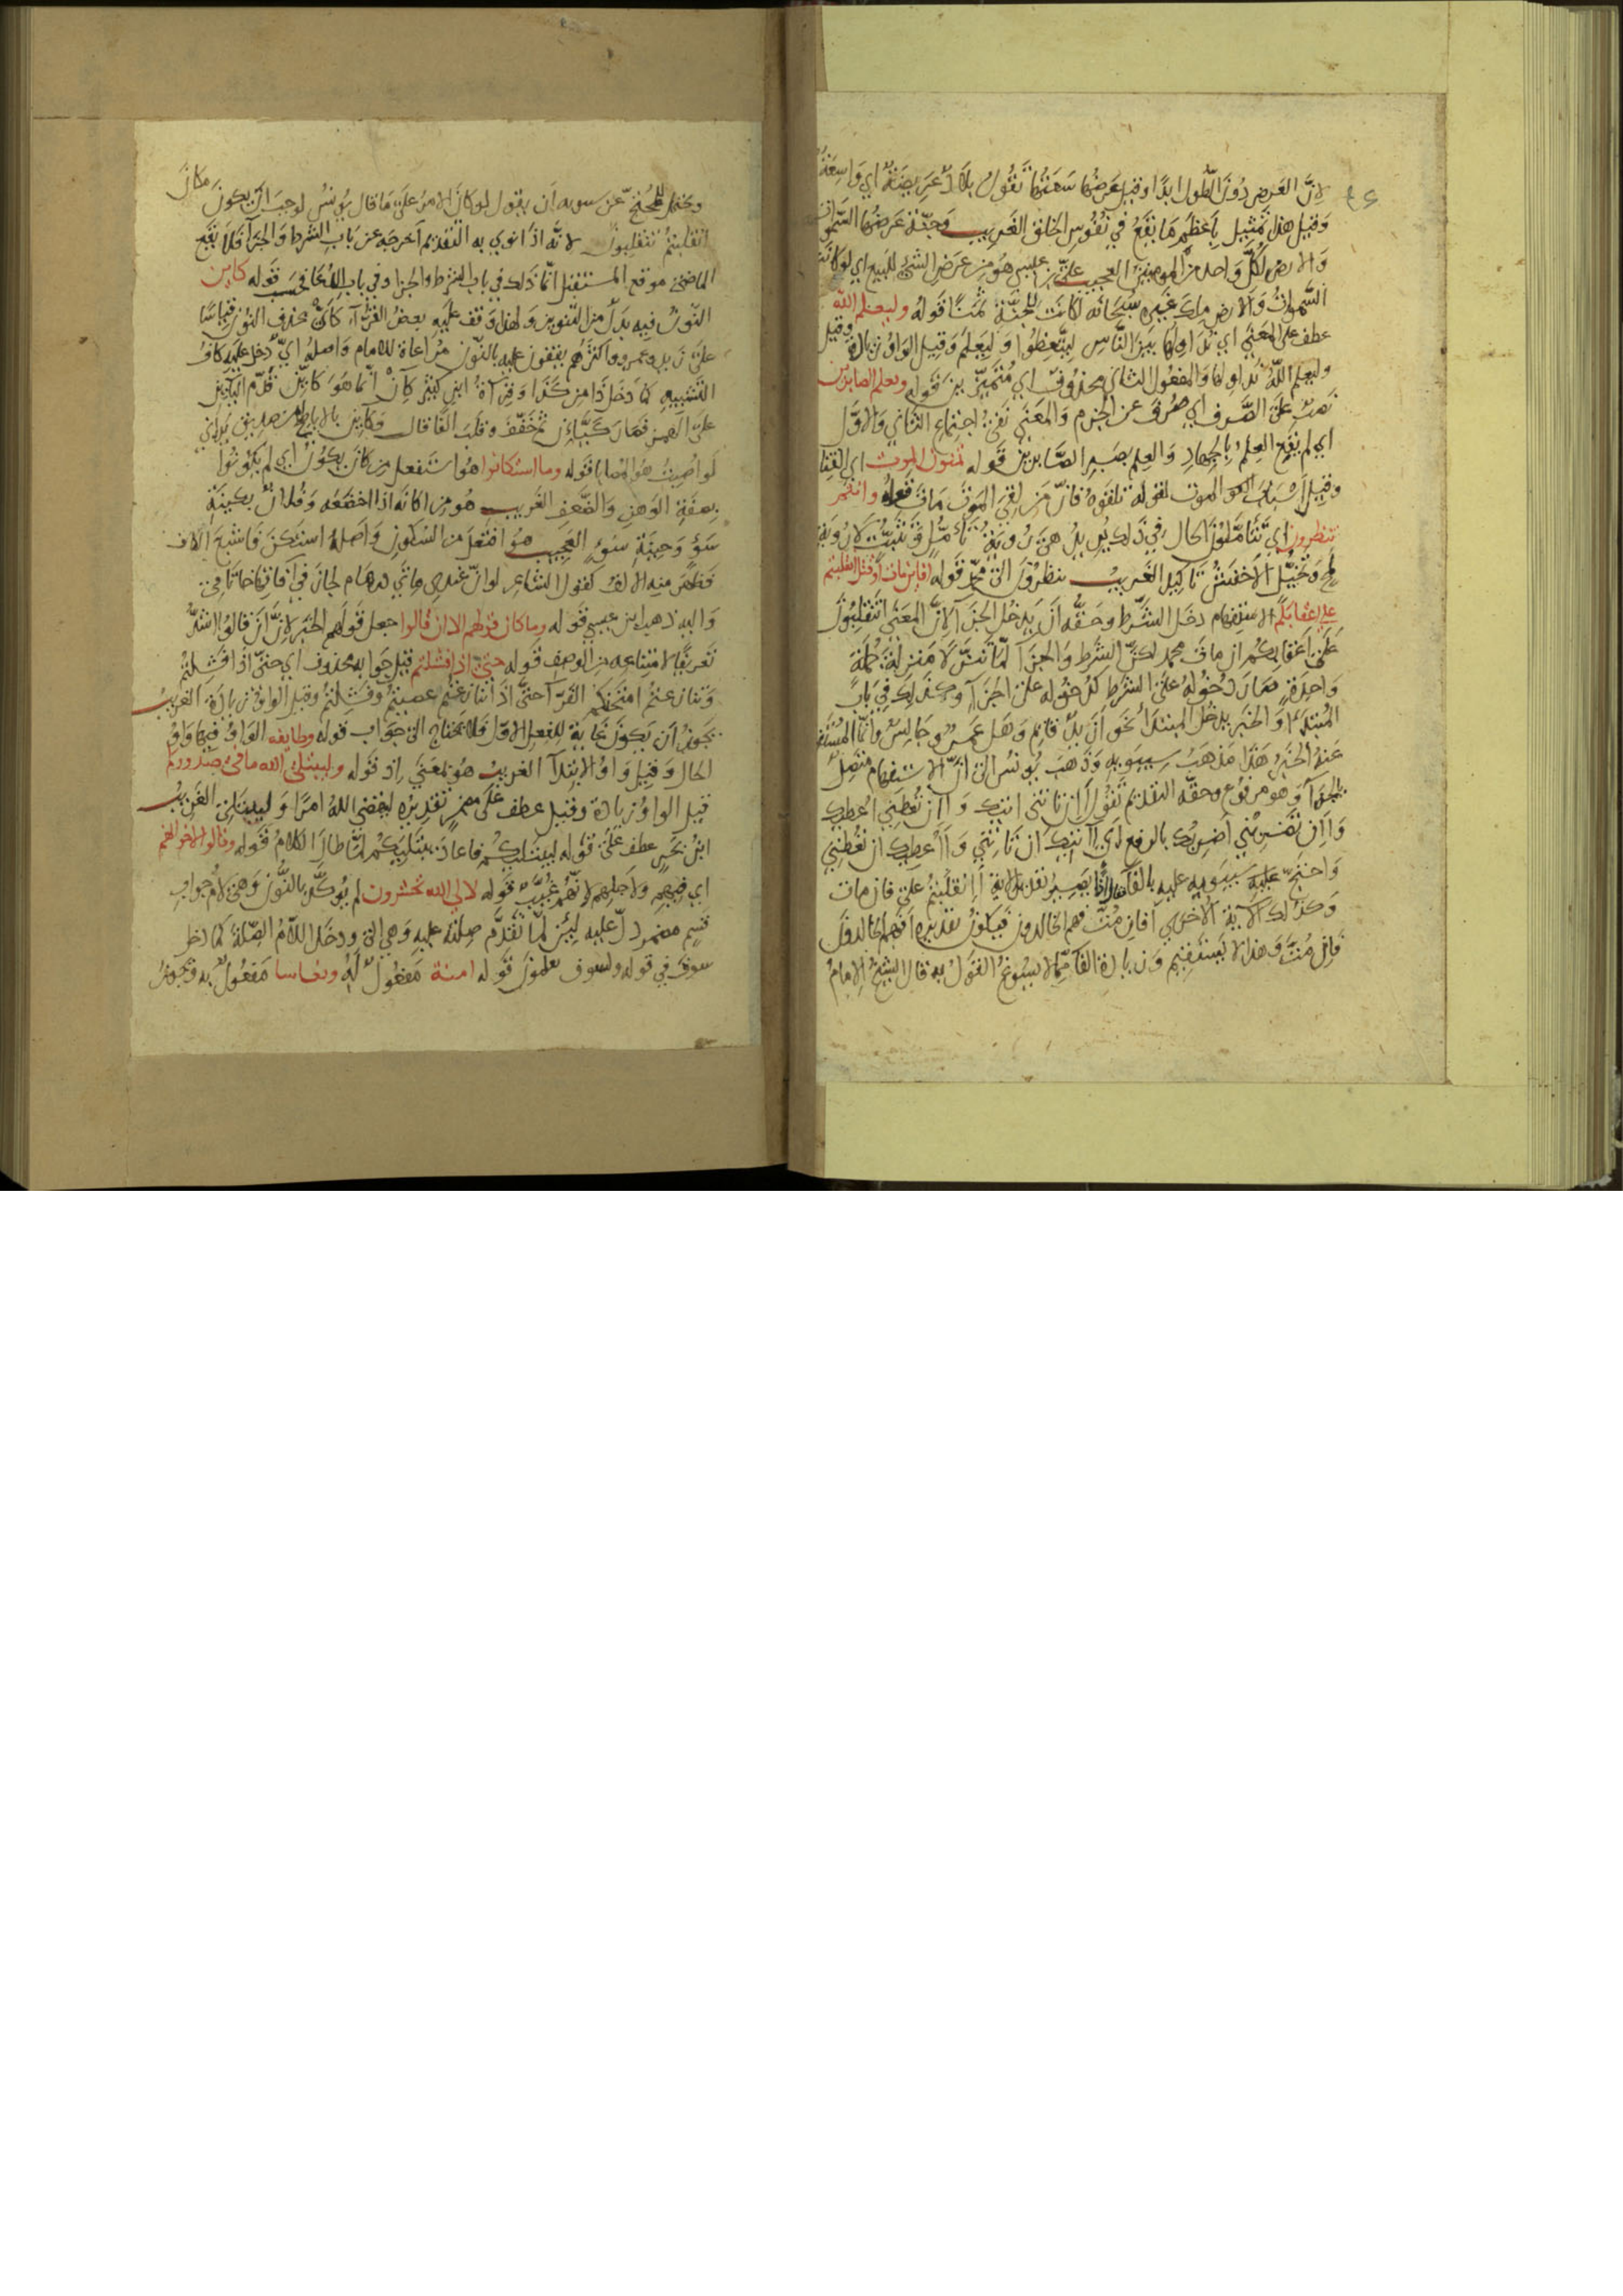 ٤٥
لانّ العَرض دُونَ الطّول ابدًا وقيل عَرضُها سَعَتُها تَقُول بلادٌ عَرِيضَةٌ اي وَاسِعَةٌ
وَقيل هذا تمثيل بِأَعظَمِ مَا يَقَعُ في نُفُوسِ الخلق الغَريب وَجَنّة عَرضُها السّموات
وَالارض لكُلِّ وَاحد مِنَ المومنين العجيب علىّ بن عيسى هُوَ مِن عَرَضِ الشئ للبيع اي لو كانَت
السَّموَاتُ وَالارض ملكَ غَيرِه سُبحَانَه لكانَت للجَنَّة ثَمَنًا قَولهُ وليعلم الله
عطف على المعَنى اي نُدَاوِلها بَينَ النَّاسِ لِيَتَّعِظُوا وَليَعلَم وَقيلَ الوَاوُ زيَادَة وقيل
وليعلم اللّهُ نُداولها وَالمفعُول الثاني محذوفٌ اي مُتَمَيِّزين قَوله ويعلم الصابرين
نَصبٌ عَلَى الصَّرف اي صُرِفَ عن الجَزم وَالمعَنى نَفىُ اجتِمَاعِ الثاني وَالاوّل
اي لم يَقَع العِلمُ بِالجِهَادِ وَالعِلم بِصَبرِ الصَّابرين قَوله تمنون الموت اي القتال
وقيل اَسبَابَ الموت لقوله تلقَوهُ فانّ مَن لقىَ المَوتَ مَاتَ قوله وانتم
تنظرون اي تتأمَّلُونَ الحال في ذَلكَ بل هىَ رُؤيَةُ تَأَمُّلٍ وَتَثَبُّتٍ لا رُؤيَة
لَمحٍ الاَخفَشُ تأكيد الغَريب تنظرُونَ الى محمّد قَوله افاين مات او قتل انقلبتم
على اعقابكم الاستِفهَام دخَل الشَّرط وحَقُّه اَن يَدخُل الجزَاء لاِنَّ المعَنى اَتَنقَلِبُونَ
عَلَى اَعقَابكُم ان مات محمد لكنّ الشَّرط وَالجزاء لمَّا تَنَزَّلا مَنزِلَةَ جُملَة
وَاحِدَة صَارَ دُخولهُ عَلى الشَّرط كدُخُوله عَلى الجَزاء وكَذلك في بَابِ
المُبتَدَإ وَالخَبَر يدخُل المبتدأ نحو اَزيدٌ قائم وَهَل عَمرٌو جَالِسٌ وانَّما المُستَفهَم
عَنهُ الخَبَرُ هَذَا مَذهَبُ سيبَوَيه وَذَهَبَ يُونس الى اَنّ الاستفهام متصِلٌ
بالجزَاء وهو مرفوع وحقّه التقديم تَقُول أَإن تاتني اتيك وَأَإن تُعطِني اُعطيك
وَأَإن تَضرِبْني اَضرِبُك بالرفع اي أَآتيك ان تَاتِني وَأَأُعطيك ان تُعطِني
وَاحتجَّ عليه سيبَوَيه
وَكذلك الآية الاخرى أفاِن مُتَّ فهم الخالدون فيكون تقديره أفهم الخالدون
فاِن مُتَّ وَهذا لا يَستَقِيم وَزيَادة الفاء ممّا لا يسُوغُ القَولُ به قال الشيخ الامامُ
ويحتمل للمُحتَجّ عَن سيبويه أن يقول لو كانَ الامرُ عَلَى مَا قال يُونسُ لوجبَ ان يكونَ مكانَ
انقلبتم تنقلبون لانّه اذا نوي به التقديم اَخرَجَه عن بَابِ الشَّرط وَالجزاء فَلا يَقَع
الماضي موقع المستقبل انّما ذَلك في باب الشرط والجزا وفي باب الدُّعَا قَوله كاين
النّونُ فيه بَدَلٌ منَ التنوين وَلهذا وَقَف عَليه بعضُ القُرّاء كَأَىْ بحذف النّون قيَاسًا
عَلى زيد وعمرو واكثرهُم يقفون عليه بالنّون مُرَاعَاة للامام وَاصلهُ اىّ دُخل عليه كافُ
التَّشبيهِ كما دَخَل ذَا مِن كَذَا وَقِرَآءةُ ابن كثير كائِنْ
عَلَى الهمز فَصَارَ كَيَّاءِن ثم خُفِّفَ وقلب الفا قال وَكاين بالاباطح من صديق يَراني
لَو اُصِبتُ هُوَ المُصَابا قوله وما استكانوا هُوَ استفعل من كَانَ يكون اي لم يكُونُوا
بِصِفَة الوَهنِ وَالضَّعف الغَريب هُوَ مِن اكانه اذا اخضَعَه وَفُلانٌ بِكِينَةِ
سَوْءٍ وَحِيبَةِ سَوْءٍ العَجِيب هُوَ افتعَلَ من السّكون وَاَصلهُ استكَنَ فاشبع الكاف
فَظَهَرَ منه الالفُ كقول الشاعر لو انّ عندي مائتي درهَام لجازَ في آفاقها خاتامِى
وَاليه ذهب ابن عيسى قَوله وما كان قولهم الا ان قالوا جعل قَولَهُم الخَبَر لاِنَّ اَن قالُوا اَشَدُّ
تَعريفًا لامتِناعِه مِن الوصف قَوله حتى اذا فشلتم قيل جَوابه محذوف اي حتّى اذا فشِلتُم
وَتنازعتُم امتَحنَكُم الفَرّاء حتَّى اذَا تنازعتُم عصيتم وفَشِلتُم وقيل الواو زيَادَة الغريبُ
يَجُوز اَن يكون غايةً للفعل الاوّل فلا يحتاج الى جَوَاب قوله وطايفه الوَاوُ فيها وَاوُ
الحال وَقيل وَاوُ الابتدآء الغريب هُوَ بمَعنى إذ قَوله وليبتلى الله ما فى صدوركم
قيل الواوُ زيَادة وقيل عطف على مضمرٍ تقديره ليقضي اللهُ امرًا وَليبتلى الغريبُ
ابنُ بحرٍ عطف عَلَى قَوله ليبتليكُم فاعاد يبتليكم لمّا طالَ الكلامُ قوله وقالوا لاخوانهم
اي فيهم وَلاَجلِهِم لانّهُم غُيَّبٌ قَوله لالى الله تحشرون لم يُوكَّد بالنُّون وَهىَ لامُ جوابِ
قَسَمٍ مضمر دلّ عليه لَئِن لمَّا تَقَدَّم صِلَتُهُ عليه وَهي الى ودخَل اللامُ الصِّلَة كما دخل
سوفَ في قوله ولسوف تعلمون قَوله امنة مَفعُولٌ لَهُ ونعاسا مَفعُولٌ به وَيَجُوزُ